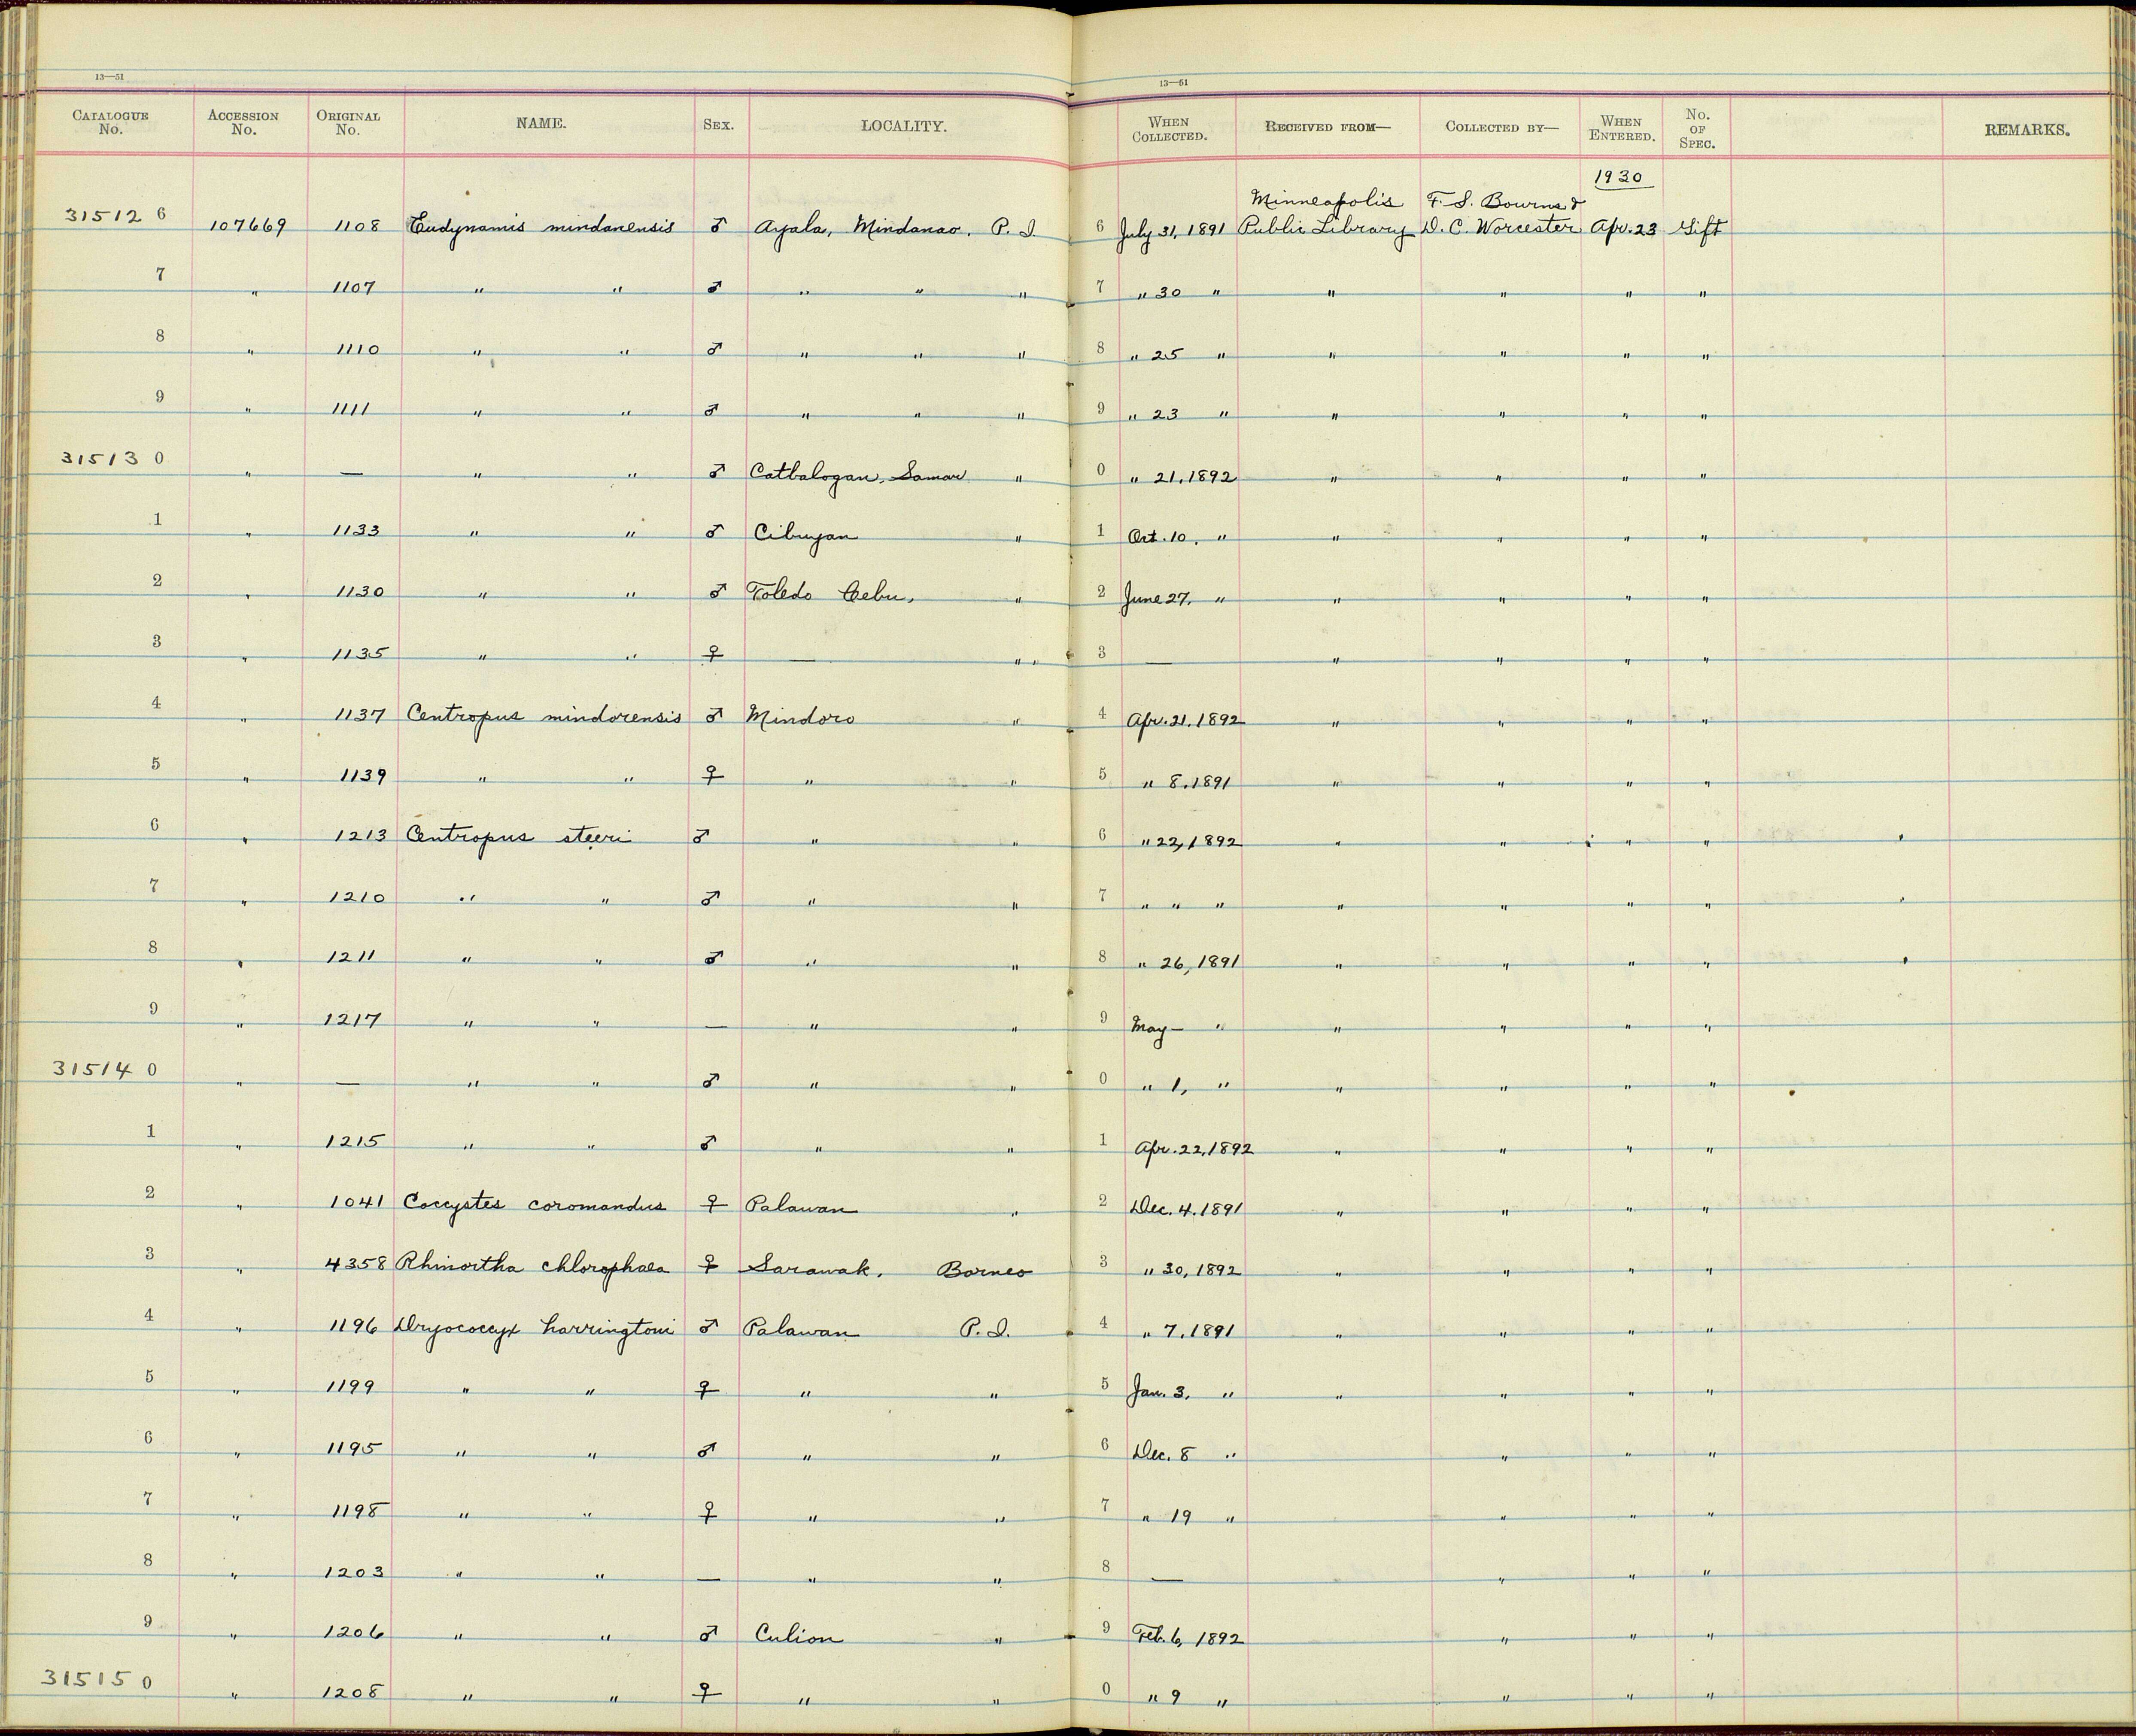 13—51 13—51
CATALOGUE No. ACCESSION No. ORIGINAL No. NAME. SEX. LOCALITY. WHEN COLLECTED. RECEIVED FROM— COLLECTED BY— WHEN ENTERED. No. OF SPEC. REMARKS.
1930
Minneapolis F. S. Bourns &
315126 107669 1108 Eudynamis mindanensis ♂ Ayala, Mindanao, P. I. 6 July 31, 1891 Public Library D. C. Worcester Apr. 23 Gift
7 " 1107 " " ♂ " " " 7 " 30 " " " " "
8 " 1110 " " ♂ " " " 8 " 25 " " " " "
9 " 1111 " " ♂ " " " 9 " 23 " " " " "
315130 " — " " ♂ Catbalogan, Samar " 0 " 21, 1892 " " " "
1 " 1133 " " ♂ Cibuyan " 1 Oct. 10, " " " " "
2 " 1130 " " ♂ Toledo Cebu, " 2 June 27, " " " " "
3 " 1135 " " ♀ — " 3 — " " " "
4 " 1137 Centropus mindorensis ♂ Mindoro " 4 Apr. 21, 1892 " " " "
5 " 1139 " " ♀ " " 5 " 8, 1891 " " " "
6 " 1213 Centropus steeri ♂ " " 6 " 22, 1892 " " " "
7 " 1210 " " ♂ " " 7 " " " " " " "
8 " 1211 " " ♂ " " 8 " 26, 1891 " " " "
9 " 1217 " " — " " 9 May — " " " " "
315140 " — " " ♂ " " 0 " 1, " " " " "
1 " 1215 " " ♂ " " 1 Apr. 22, 1892 " " " "
2 " 1041 Coccystes coromandus ♀ Palawan " 2 Dec. 4. 1891 " " " "
3 " 4358 Rhinortha chlorophaea ♀ Sarawak, Borneo 3 " 30, 1892 " " " "
4 " 1196 Dryococcyx harringtoni ♂ Palawan P. I. 4 " 7, 1891 " " " "
5 " 1199 " " ♀ " " 5 Jan. 3, " " " " "
6 " 1195 " " ♂ " " 6 Dec. 8 " " " "
7 " 1198 " " ♀ " " 7 " 19 " " " "
8 " 1203 " " — " " 8 — " " "
9 " 1206 " " ♂ Culion " 9 Feb. 6, 1892 " " "
315150 " 1208 " " ♀ " " 0 " 9 " " " "